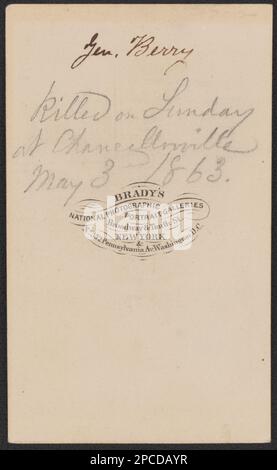 Gen. Berry
Killed on Sunday
at Chancellorville
May 3 1863.
BRADY'S
NATIONAL PHOTOGRAPHIC PORTRAIT GALLERIES
Broadway & Tenth St.
NEW YORK
&
Pennsylvania Av. Washington D.C.
alamy
Image ID: 2PCDAYR
www.alamy.com